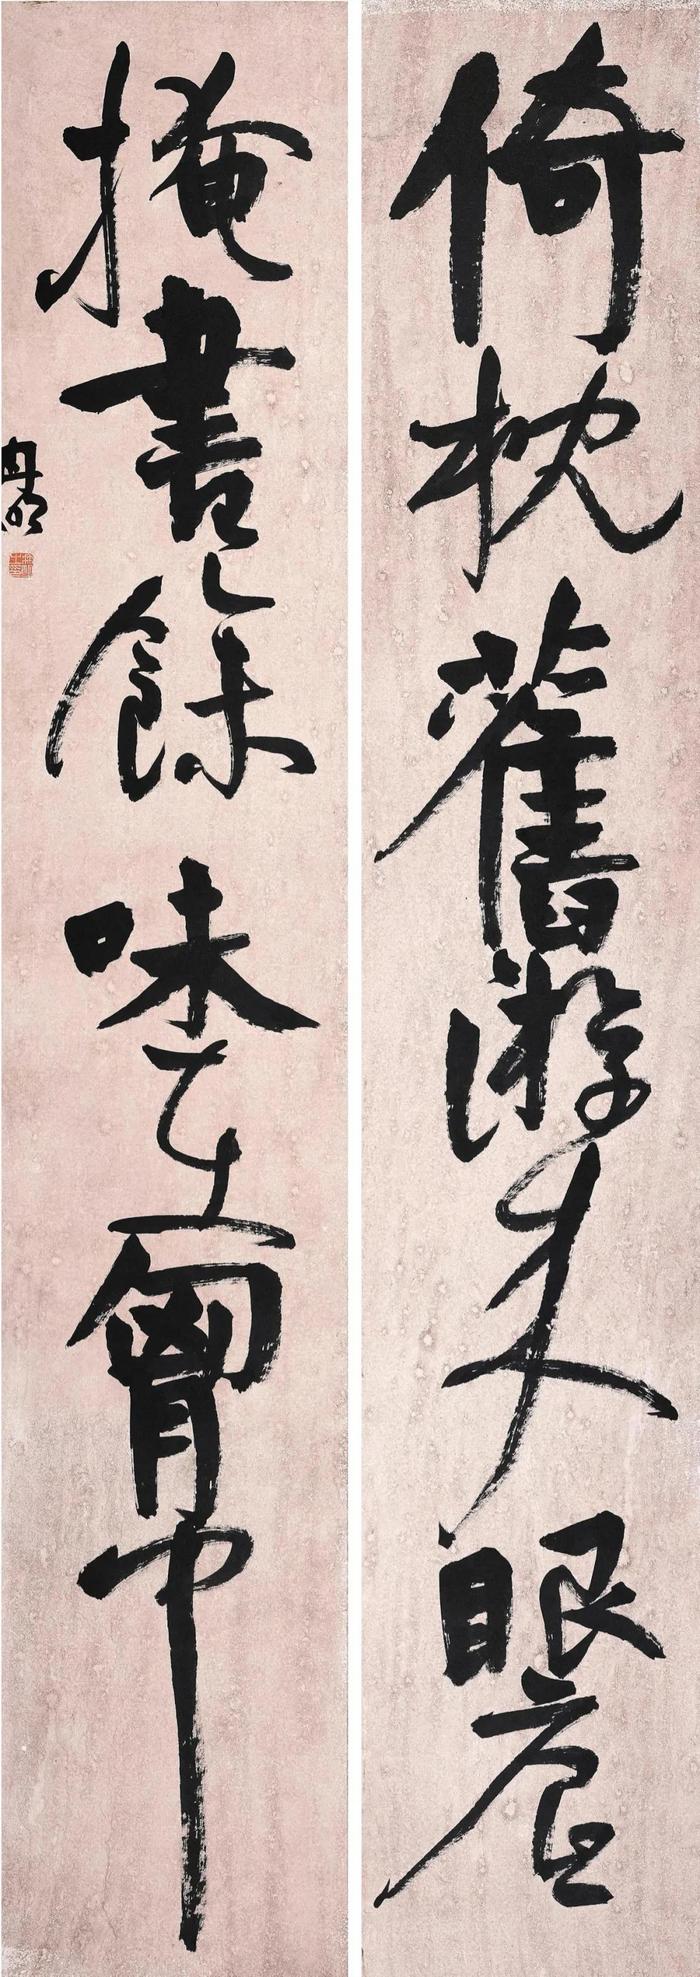 倚枕舊游來眼底
掩書餘味在胷中